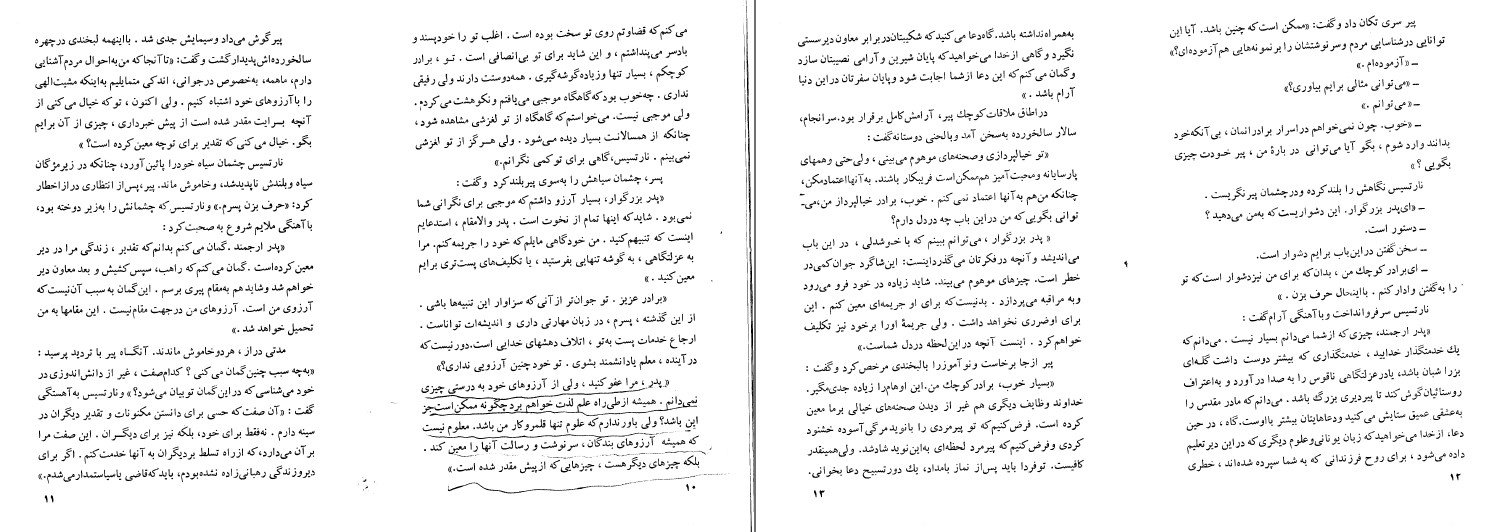 می‌کنم که قضاوتم روی تو سخت بوده است . اغلب تو را خودپسند و
بادسر می‌پنداشتم ، و این شاید برای تو بی‌انصافی است . تـو ، برادر
کوچکم ، بسیار تنها وزیاده گوشه‌گیری . همه‌دوستت دارند ولی رفیقی
نداری . چه‌خوب بود که گاهگاه موجبی می‌یافتم ونکوهشت می‌کردم .
ولی موجبی نیست. می‌خواستم که گاهگاه از تو لغزشی مشاهده شود ،
چنانکه از همسالانت بسیار دیده می‌شود . ولی هـرگز از تو لغزشی
نمی‌بینم . نارتسیس،گاهی برای تو کمی نگرانم.»
پسر، چشمان سیاهش را به‌سوی پیر بلند کرد وگفت :
«پدر بزرگوار، بسیار آرزو داشتم که موجبی برای نگرانی شما
نمی‌بود . شاید که اینها تمام از نخوت است . پدر والامقام ، استدعایم
اینست که تنبیهم کنید . من خودگاهی مایلم که خود را جریمه کنم. مرا
به عزلتگاهی ، به گوشه تنهایی بفرستید ، یا تکلیف‌های پست‌تری برایم
معین کنید . »
«برادر عزیز . تو جوان‌تر از آنی که سزاوار این تنبیه‌ها باشی .
از این گذشته ، پسرم ، در زبان مهارتی داری و اندیشه‌ات تواناست .
ارجاع خدمات پست به‌تو ، اتلاف دهشهای خدایی است.دور نیست که
در آینده ، معلم یادانشمند بشوی . تو خودچنین آرزویی نداری؟»
«پدر ، مرا عفو کنید ، ولی از آرزوهای خود به درستی چیزی
نمی‌دانم . همیشه ازطی‌راه علم لذت خواهم برد چگونه ممکن‌است‌جز
این باشد؟ ولی باورندارم که علوم تنها قلمروکار من باشد. معلوم نیست
که همیشه آرزوهای بندگان، سرنوشت و رسالت آنها را معین کند .
بلکه چیزهای دیگر هست ، چیزهایی که از پیش مقدر شده است.»
۱۰
پیر گوش می‌داد وسیمایش جدی شد . بااینهمه لبخندی درچهره
سالخورده‌اش پدیدار گشت وگفت: «تا آنجا که من به‌احوال مردم آشنایی
دارم، ماهمه، به‌خصوص درجوانی، اندکی متمایلیم به‌اینکه مشیت‌الهی
را با آرزوهای خود اشتباه کنیم . ولی اکنون ، تو که خیال می‌کنی از
آنچه بسرایت مقدر شده است از پیش خبرداری ، چیزی از آن برایم
بگو. خیال می‌کنی که تقدیر برای توچه معین کرده است؟ »
نارتسیس چشمان سیاه خودرا پائین آورد، چنانکه در زیرمژگان
سیاه وبلندش ناپدیدشد، وخاموش ماند. پیر،پس‌از انتظاری درازاخطار
کرد: «حرف بزن پسرم.» ونارتسیس که چشمانش را به‌زیر دوخته بود،
باآهنگی ملایم شروع به صحبت کرد :
«پدر ارجمند .گمان می‌کنم بدانم که تقدیر ، زندگی مرا در دیر
معین کرده‌است .گمان می‌کنم که راهب، سپس کشیش و بعد معاون دیر
خواهم شد وشاید هم به‌مقام پیری برسم . این‌گمان به سبب آن‌نیست که
آرزوی من است. آرزوهای من درجهت مقام‌نیست . این مقامها به من
تحمیل خواهد شد .»
مدتی دراز ، هردوخاموش ماندند. آنگـاه پیر با تردید پرسید :
«به‌چه سبب چنین‌گمان می‌کنی ؟ کدام‌صفت ، غیر از دانش‌اندوزی در
خود می‌شناسی که در این‌گمان تو بیان می‌شود؟» ونارتسیس به‌آهستگی
گفت : «آن صفت که حسی برای دانستن مکنونات و تقدیر دیگران در
سینه دارم . نه‌فقط برای خود، بلکه نیز برای دیگسران . این صفت مرا
بر آن می‌دارد،که ازراه تسلط بردیگران به آنها خدمت‌کنم . اگر برای
دیروزندگی رهبانی‌زاده نشده‌بودم، باید که‌قاضی یاسیاستمدارمی‌شدم.»
۱۱
پیر سری تکان داد و گفت: «ممکن است که چنین باشد. آیا این
توانایی درشناسایی مردم وسرنوشتشان را بر نمونه‌هایی هم آزموده‌ای؟»
ــ «آزموده‌ام .»
ــ «می‌توانی مثالی برایم بیاوری؟»
ــ «می‌توانم .»
ــ «خوب. چون نمی‌خواهم دراسرار برادرانمان ، بی‌آنکه‌خود
بدانند وارد شوم ، بگو آیا می‌توانی در بارهٔ من ، پیر خـودت چیزی
بگویی ؟ »
نارتسیس نگاهش را بلندکرده ودرچشمان پیرنگریست .
ــ «ای‌پدر بزرگوار. این دشواریست که به‌من می‌دهید ؟
ــ دستور است.
ــ سخن‌گفتن دراین‌باب برایم دشوار است.
ــ ای‌برادر کوچك من ، بدان‌که برای من نیزدشوار است‌که تو
را به‌گفتن وادار کنم . بااینحال حرف بزن . »
نارتسیس سرفروانداخت وباآهنگی آرام‌گفت :
«پدر ارجمند، چیزی که ازشما می‌دانم بسیار نیست . می‌دانم‌که
یك خدمتگذار خدایید ، خدمتگذاری که بیشتر دوست داشت گلـه‌ای
بزرا شبان باشد، یادر عزلتگاهی ناقوس را به صدا در آورد و به‌اعتراف
روستائیان گوش کند تا پیردیری بزرگ باشد . می‌دانم‌که مادر مقدس را
به‌عشقی عمیق ستایش می کنید ودعاهایتان بیشتر بااوست.گاه ، در حین
دعا، ازخدا می‌خواهید که زبان یونانی‌وعلوم دیگری که در این دیرتعلیم
داده می‌شود ، برای روح فرزندانی که به شما سپرده شده‌اند ، خطری
۱۲
به‌همراه‌نداشته باشد.گاه دعا می‌کنید که شکیبتان دربرابر معاون دیرسستی
نگیرد وگاهی ازخدا می‌خواهید که پایان شیرین و آرامی نصیبتان سازد
وگمان می‌کنم که این دعا ازشما اجابت شود وپایان سفرتان دراین دنیا
آرام باشد . »
دراطاق ملاقات کوچك پیر، آرامش‌کامل برقرار بود.سرانجام،
سالار سالخورده به‌سخن آمد وبالحنی دوستانه‌گفت :
«تو خیالپردازی وصحنه‌های موهوم می‌بینی ، ولی‌حتی وهمهای
پارسایانه ومحبت‌آمیز هم‌ممکن‌است فریبکار باشند. به‌آنهااعتمادمکن،
چنانکه من‌هم به‌آنها اعتماد نمی‌کنم . خوب، برادر خیالپرداز من،می‌ـ
توانی بگویی که من در این باب چه دردل دارم؟
« پدر بزرگوار ، می‌توانم ببینم که با خـوشدلی ، در این باب
می‌اندیشد وآنچه درفکرتان می‌گذرداینست: این‌شاگرد جوان کمی‌در
خطر است. چیزهای موهوم می‌بیند. شاید زیاده در خود فرو می‌رود
وبه مراقبه می‌پردازد . بدنیست که برای او جریمه‌ای معین کنم . این
برای اوضرری نخواهد داشت . ولی جریمهٔ اورا برخود نیز تکلیف
خواهم‌کرد . اینست آنچه دراین‌لحظه دردل شماست.»
پیر ازجا برخاست ونوآموزرا بالبخندی مرخص‌کرد وگفت :
«بسیار خوب، برادرکوچك من.این اوهام‌را زیاده جدی‌مگیر.
خداوند وظایف دیگری هم غیر از دیدن صحنه‌های خیالی برما معین
کرده است. فرض‌کنیم‌که تو پیرمردی را بانوید مرگی آسوده خشنود
کردی وفرض‌کنیم‌که پیرمرد لحظه‌ای به‌این‌نوید شادشد. ولی‌همینقدر
کافیست. توفردا باید پس‌از نماز بامداد، یك دورتسبیح دعا بخوانی.
۱۳